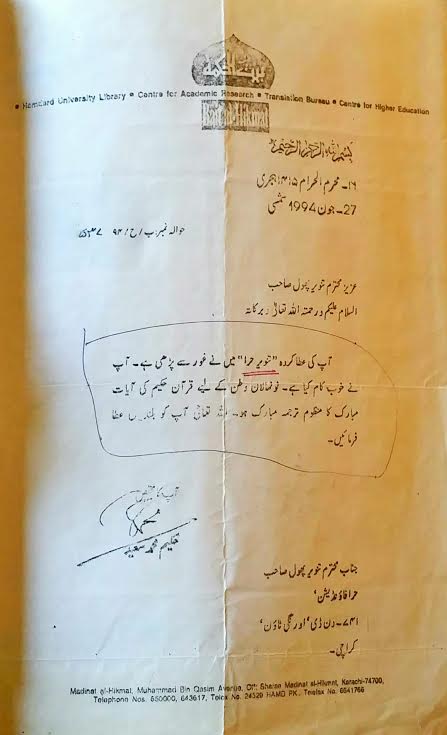 بیت الحکمہ
Bait al-Hikmat
• Hamdard University Library • Centre for Academic Research • Translation Bureau • Centre for Higher Education
بسم اللہ الرحمن الرحیم
۱۶۔ محرم الحرام ۱۴۱۵ ہجری
27۔جون 1994 شمسی
حوالہ نمبر: ب / ح / ۹۴ /
عزیز محترم تنویر پھول صاحب
السلام علیکم ورحمتہ اللہ تعالیٰ وبرکاتہ
آپ کی عطا کردہ "تنویر حرا" میں نے غور سے پڑھی ہے۔ آپ
نے خوب کام کیا ہے۔ نونہالان وطن کے لیے قرآن حکیم کی آیات
مبارک کا منظوم ترجمہ مبارک ہو۔ اللہ تعالیٰ آپ کو بلندیاں عطا
فرمائیں۔
آپ کا مخلص
حکیم محمد سعید
جناب محترم تنویر پھول صاحب
حرا فاؤنڈیشن'
۷۴۱۔ون ڈی' اورنگی ٹاؤن'
کراچی۔
Madinat al-Hikmat, Muhammad Bin Qasim Avenue, Off: Sharae Madinat al-Hikmat, Karachi-74700,
Telephone Nos. 650000, 643617, Telex No. 24529 HAMD PK., Telefax No. 6641766